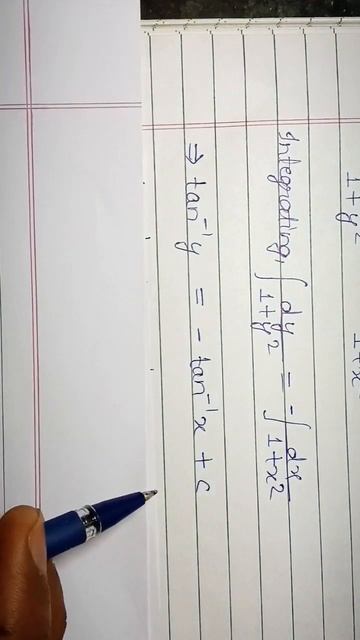 1+y² 1+x²
Integrating, ∫ dy/1+y² = -∫ dx/1+x²
⇒ tan⁻¹y = -tan⁻¹x + c